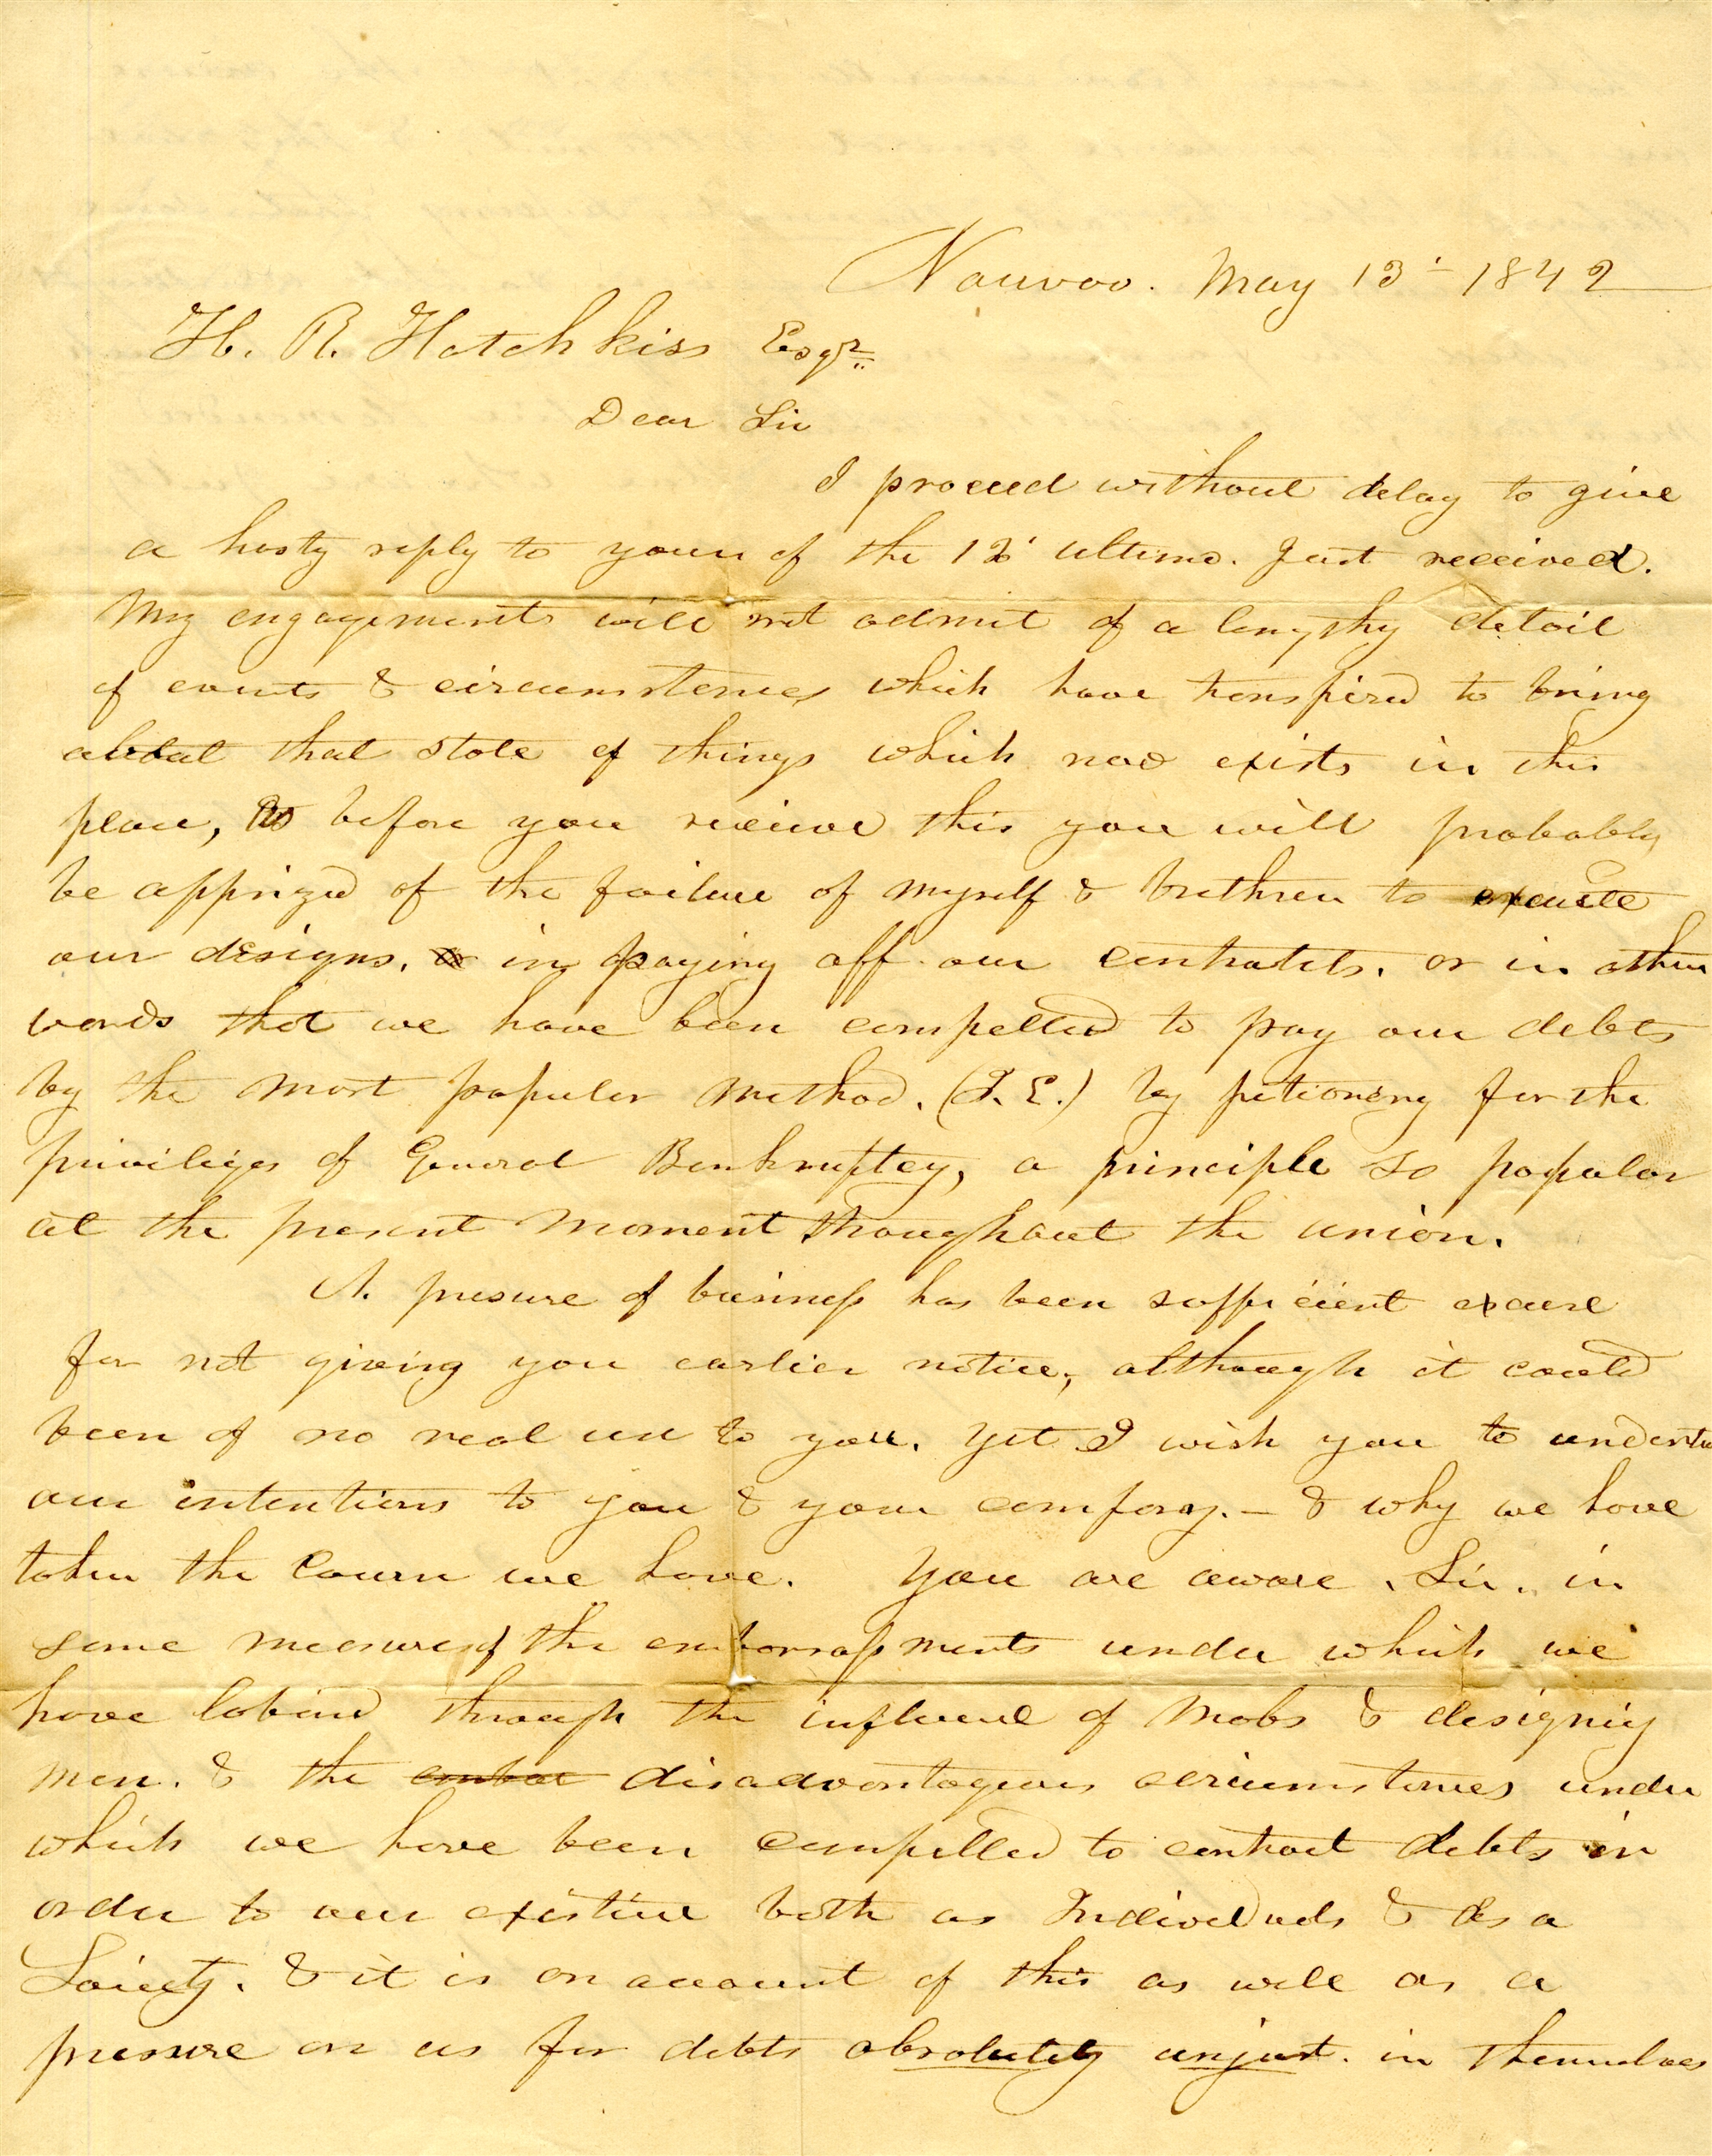 Nauvoo. May 13' - 1842
H. R. Hotchkiss Esqr.
Dear Sir
I proceed without delay to give
a hasty reply to your of the 12' ultimo. Just received.
My engagements will not admit of a lengthy detail
of events & circumstances which have transpired to bring
about that state of things which now exists in this
place, before you receive this you will probably
be apprized of the failure of myself & brethren to execute
our designs. in paying off our contratcts. or in other
words that we have been compelled to pay our debts
by the most popular method. (I. E.) by petioning for the
privileges of General Bankruptcy, a principle so popular
at the present moment throughout the union.
A. presure of business has been sufficient excuse
for not giving you earlier notice, although it could
been of no real use to you. yet I wish you to understa
our intentions to you & your company. - & why we have
taken the course we have. You are aware, Sir. in
some measure of the embarrassments under which we
have labored through the influence of Mobs & designing
men. & the embar disadvantageous circumstances under
which we have been compelled to contract debts in
order to our existince both as Individuals & as a
Society. & it is on account of this as well as a
presure on us for debts absolutely unjust. in themselves